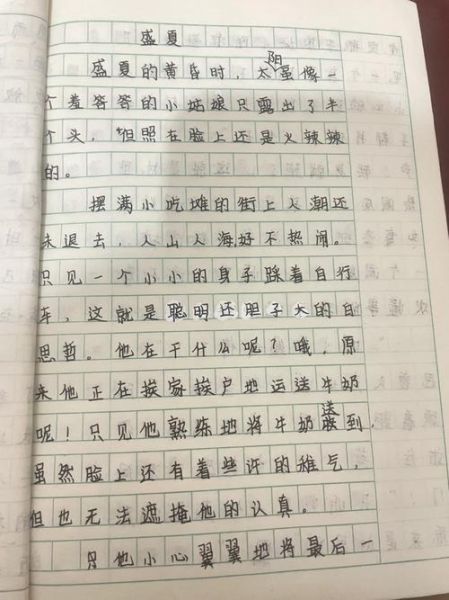 盛夏
盛夏的黄昏时，太阳虽像一
个羞答答的小姑娘只露出了半
个头，但照在脸上还是火辣辣
的。
摆满小吃摊的街上人潮还
未退去，人山人海好不热闹。
只见一个小小的身子踩着自行
车，这就是聪明还胆子大的自
思哲。他在干什么呢？哦，原
来他正在挨家挨户地运送牛奶
呢！只见他熟练地将牛奶送到，
虽然脸上还有着些许的稚气，
但也无法遮掩他的认真。
只他小心翼翼地将最后一